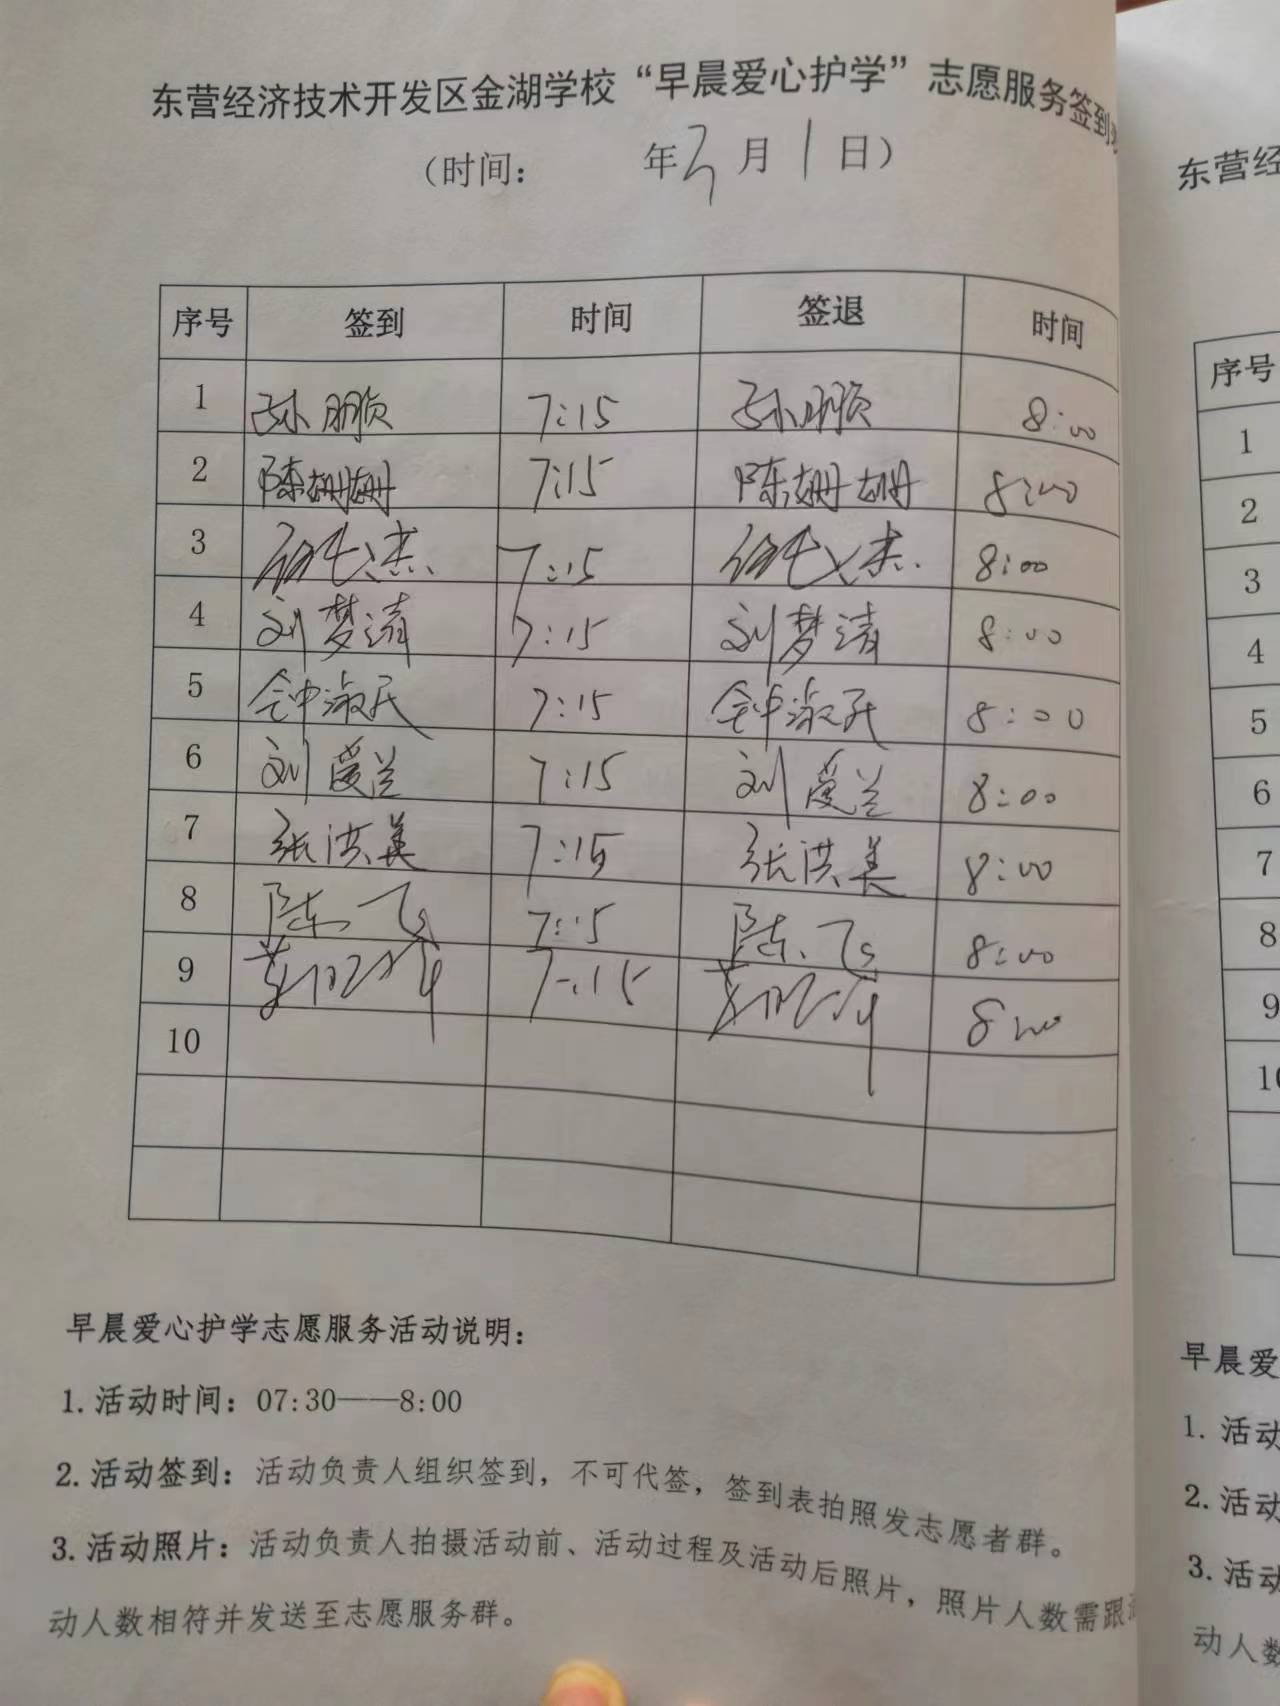 东营经济技术开发区金湖学校“早晨爱心护学”志愿服务签到
（时间： 年3月1日）
序号 签到 时间 签退 时间
1 孙鹏顺 7:15 孙鹏顺 8:00
2 陈姗姗 7:15 陈姗姗 8:00
3 7:15 8:00
4 刘梦清 7:15 刘梦清 8:00
5 钟淑民 7:15 钟淑民 8:00
6 刘爱兰 7:15 刘爱兰 8:00
7 张洪美 7:15 张洪美 8:00
8 陈飞 7:15 陈飞 8:00
9 7:15 8:00
10
早晨爱心护学志愿服务活动说明：
1.活动时间：07:30——8:00
2.活动签到：活动负责人组织签到，不可代签，签到表拍照发志愿者群。
3.活动照片：活动负责人拍摄活动前、活动过程及活动后照片，照片人数需跟
动人数相符并发送至志愿服务群。
东营经
序号
1
2
3
4
5
6
7
8
9
10
早晨爱
1.活动
2.活动
3.活动
动人数